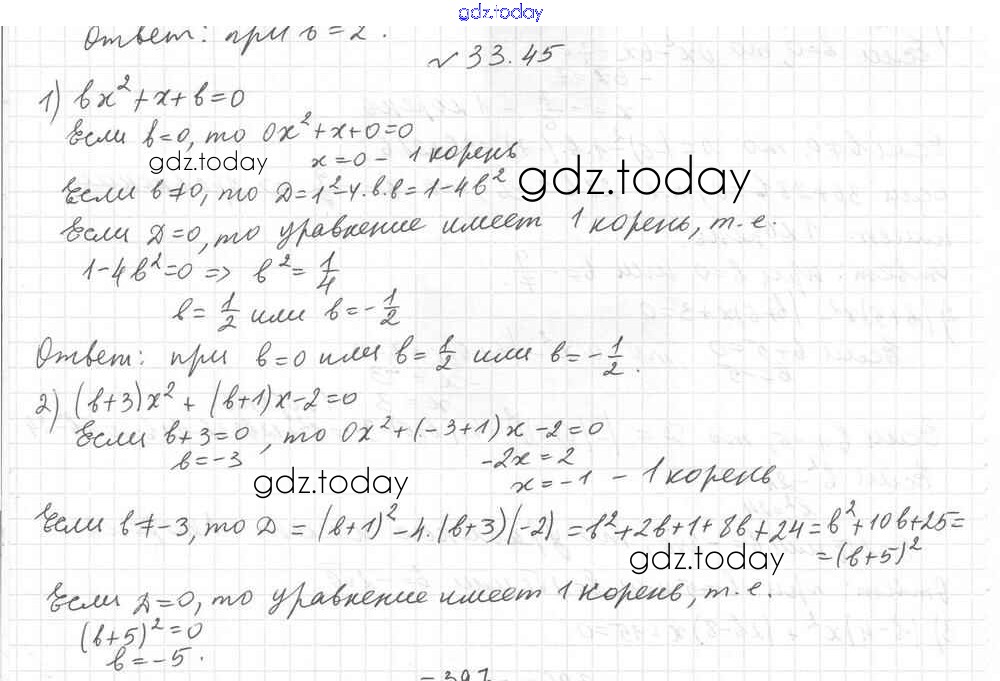 gdz.today
Ответ: при b = 2.
№ 33.45
1) bx² + x + b = 0
Если b=0, то 0x² + x + 0 = 0
gdz.today
x = 0 - 1 корень
Если b ≠ 0, то Д = 1² - 4·b·b = 1 - 4b²
gdz.today
Если Д = 0, то уравнение имеет 1 корень, т.е.
1 - 4b² = 0 => b² = 1/4
b = 1/2 или b = -1/2
Ответ: при b = 0 или b = 1/2 или b = -1/2.
2) (b+3)x² + (b+1)x - 2 = 0
Если b+3=0, то 0x² + (-3+1)x - 2 = 0
b = -3
-2x = 2
gdz.today
x = -1 - 1 корень
Если b ≠ -3, то Д = (b+1)² - 4·(b+3)(-2) = b² + 2b + 1 + 8b + 24 = b² + 10b + 25 =
gdz.today
= (b+5)²
Если Д = 0, то уравнение имеет 1 корень, т.е.
(b+5)² = 0
b = -5.